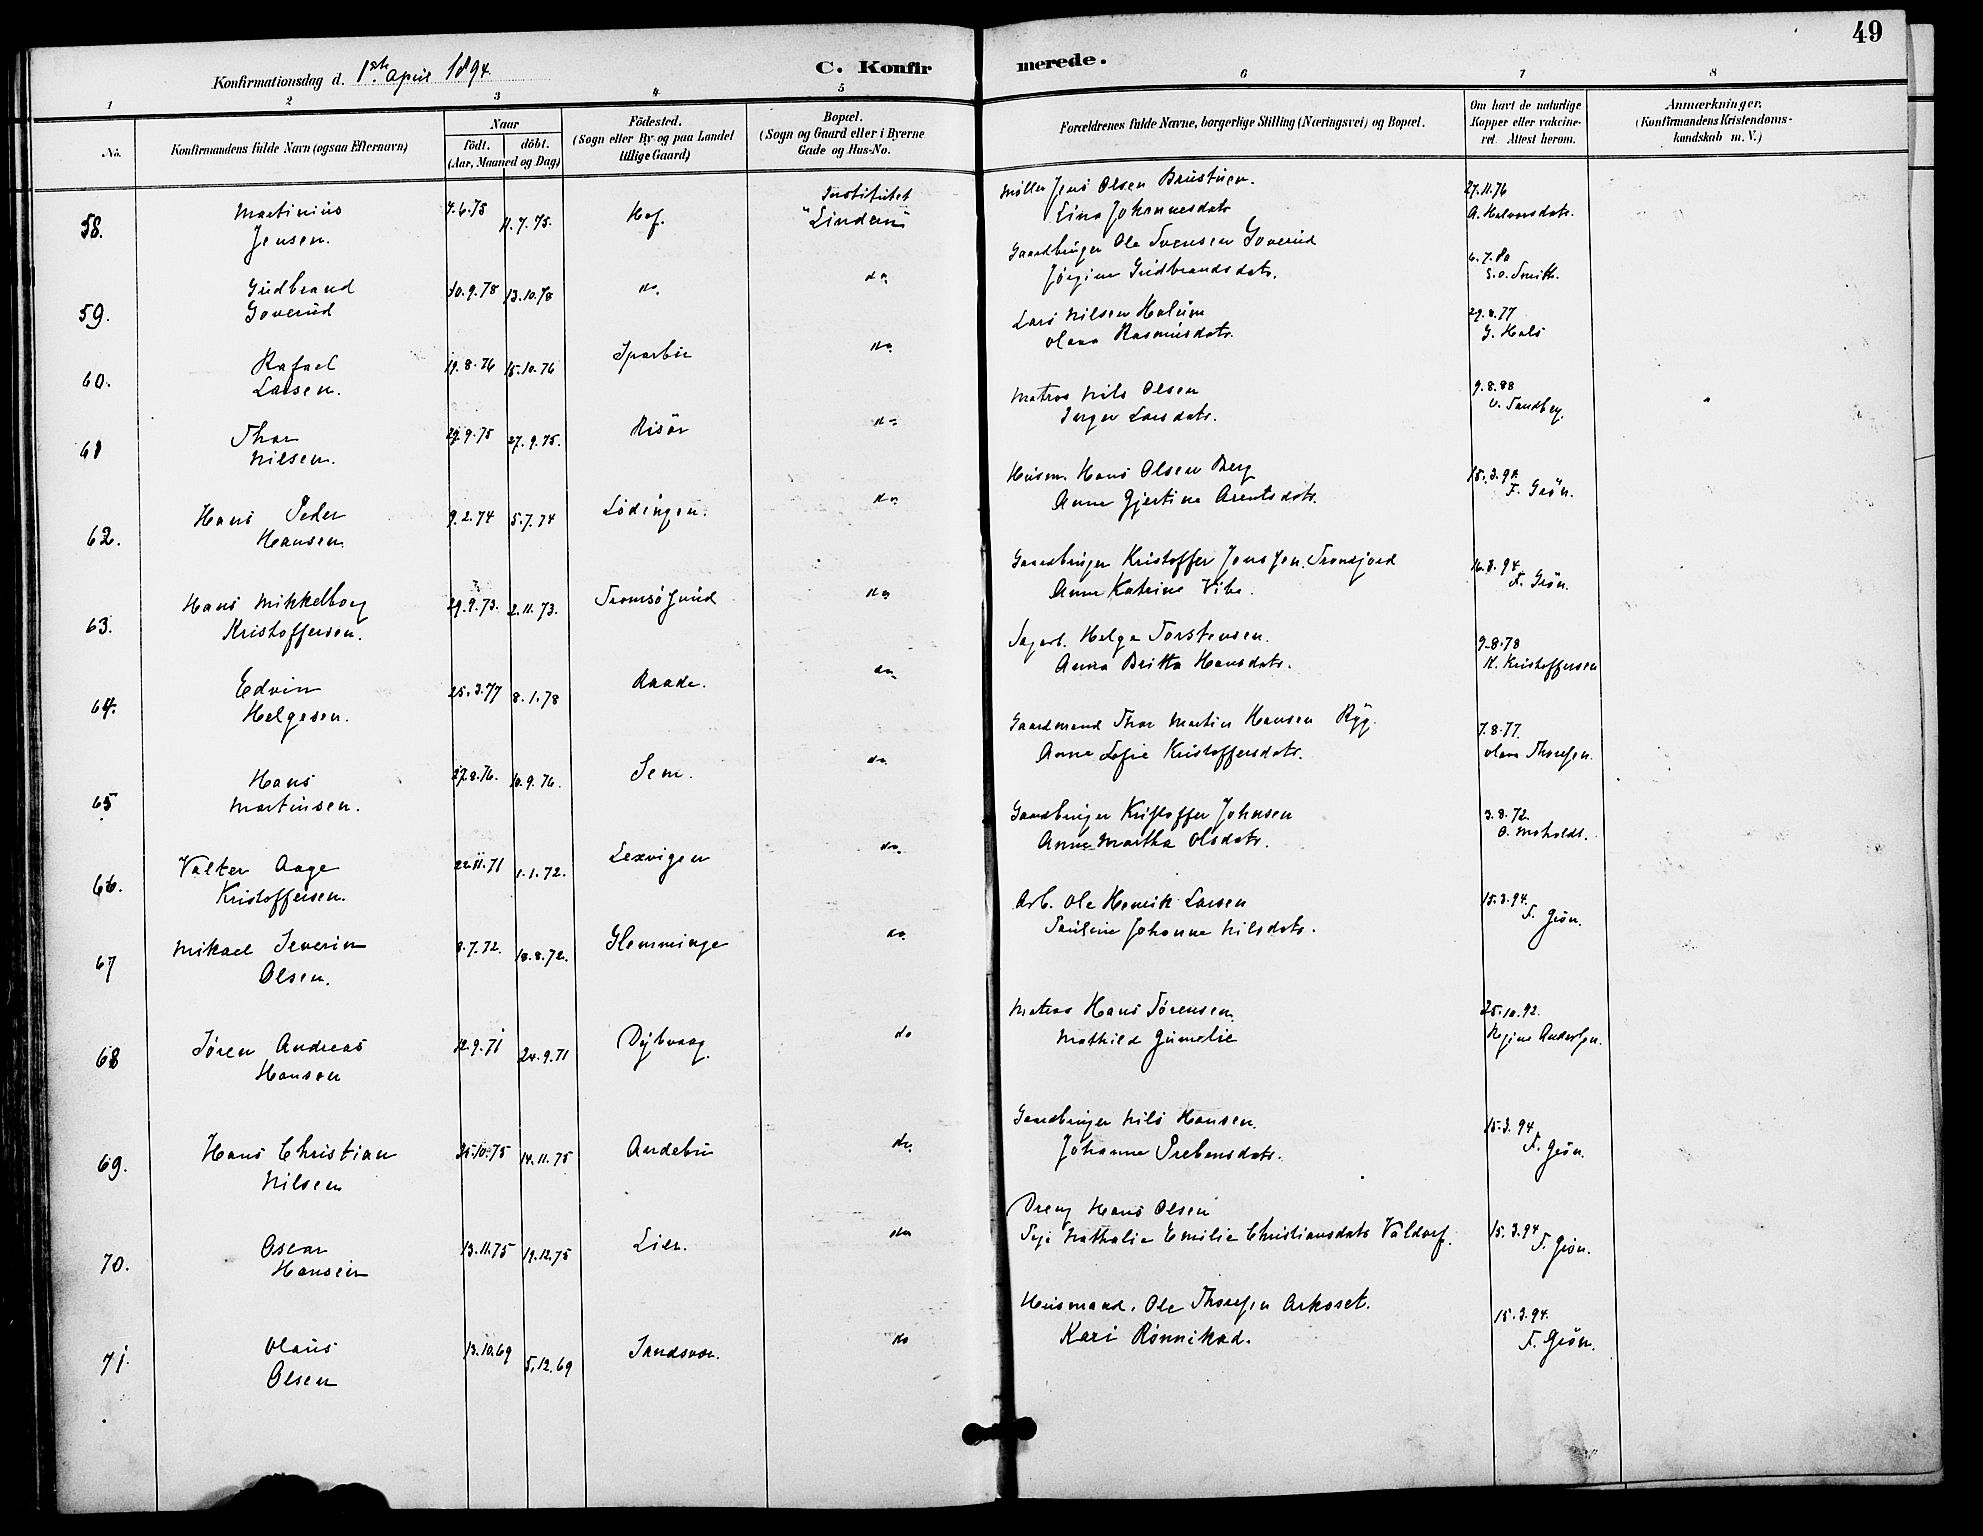 49
Konfirmationsdag d. 1ste April 1894.
C. Konfirmerede.
1 2 3 4 5 6 7 8
No.
Konfirmandens fulde Navn (ogsaa Efternavn)
Naar
födt. döbt.
(Aar, Maaned og Dag)
Födested.
(Sogn eller By og paa Landet
tillige Gaard)
Bopæl.
(Sogn og Gaard eller i Byerne
Gade og Hus-No.
Forældrenes fulde Navne, borgerlige Stilling (Næringsvei) og Bopæl.
Om havt de naturlige
Kopper eller vakcine-
ret. Attest herom.
Anmærkninger.
(Konfirmandens Kristendoms-
kundskab m. V.)
58. Martinius Jensen. 4.6.75 11.7.75. Hof. Institutet "Lindern"
Møller Jens Olsen Brustuen.
Lina Johannesdatr
27.11.76
A. Halvorsdatr.
59. Gudbrand Goverud 10.9.78 13.10.78 do. do.
Gaardbruger Ole Svensen Goverud
Jørgine Gudbrandsdatr.
6.7.80
S. O. Smith.
60. Rafael Larsen. 19.8.76 15.10.76 Sparbu do.
Lars Nilsen Halum
Olava Rasmusdatr.
29.8.77
G. Hals
61 Thor Nilsen. 29.9.75 27.9.75. Risör do.
Matros Nils Olsen
Inger Larsdatr.
9.8.88
O. Sandberg.
62. Hans Peder Hansen. 9.2.74 5.7.74 Lödingen. do.
Husm. Hans Olsen Berg
Anne Gjertine Arentsdatr.
15.3.94
F. Grön.
63. Hans Mikkelborg Kristoffersen. 29.9.73. 2.11.73. Tromsösund do
Gaardbruger Kristoffer Jenssen. Tronsjord
Anne Katrine Vibe.
16.3.94
F. Grön.
64. Edvin Helgesen. 25.3.77 8.1.78 Raade. do.
Sagarb. Helge Torstensen.
Anna Britta Hansdatr.
9.8.78
K. Kristoffersen
65 Hans Martinsen. 27.8.76. 10.9.76. Sem. do.
Gaardmand Thor Martin Hansen Ryg.
Anne Sofie Kristoffersdatr.
7.8.77.
Olava Thoresen.
66. Valter Aage Kristoffersen. 22.11.71 1.1.72. Lexvigen do.
Gaardbruger Kristoffer Johnsen
Anne Martha Olsdatr.
3.8.72.
O. Moholdt.
67 Mikael Severin Olsen. 8.7.72. 18.8.72. Glemminge do.
Arb. Ole Henrik Larsen
Pauline Johanne Nilsdatr.
15.3.94.
F. Grön.
68 Sören Andreas Hansen 12.9.71 24.9.71 Dybvaag. do
Matros Hans Sörensen.
Mathild Gumelie
25.10.92.
Regine Andersen.
69. Hans Christian Nilsen 25.10.75 14.11.75 Andebu do.
Gaardbruger Nils Hansen.
Johanne Prebensdatr.
15.3.94
F. Grön.
70. Oscar Hansen 13.11.75 19.12.75 Lier. do
Dreng Hans Olsen
Pige Nathalie Emilie Christiansdatr Valdorf.
15.3.94
F. Grön.
71. Olaus Olsen 13.10.69 5.12.69 Sandsvær. do
Husmand. Ole Thoresen Arkoset.
Kari Rönnikad.
15.3.94.
F. Grön.